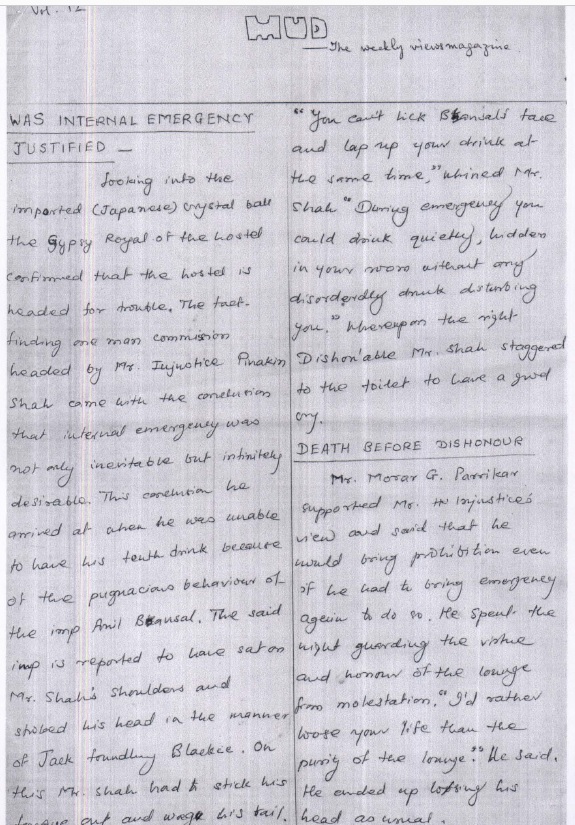 Vol. 12
MUD
— The weekly viewsmagazine.
WAS INTERNAL EMERGENCY
JUSTIFIED —
Looking into the
imported (Japanese) crystal ball
the Gypsy Royal of the hostel
confirmed that the hostel is
headed for trouble. The fact-
finding one man commission
headed by Mr. Injustice Pinakin
Shah came with the conclusion
that internal emergency was
not only inevitable but infinitely
desirable. This conclusion he
arrived at when he was unable
to have his tenth drink because
of the pugnacious behaviour of
the imp Anil Bansal. The said
imp is reported to have sat on
Mr. Shah's shoulders and
stroked his head in the manner
of Jack foundling Blackie. On
this Mr. Shah had to stick his
tongue out and wage his tail.
"You can't lick Bansal's face
and lap up your drink at
the same time," whined Mr.
Shah "During emergency you
could drink quietly, hidden
in your room without any
disorderdly drunk disturbing
you." Whereupon the right
Dishon'able Mr. Shah staggered
to the toilet to have a good
cry.
DEATH BEFORE DISHONOUR
Mr. Morar G. Parrikar
supported Mr. Injustice's
view and said that he
would bring prohibition even
if he had to bring emergency
again to do so. He spent the
night guarding the virtue
and honour of the lounge
from molestation. "I'd rather
loose your life than the
purity of the lounge." He said.
He ended up loosing his
head as usual.